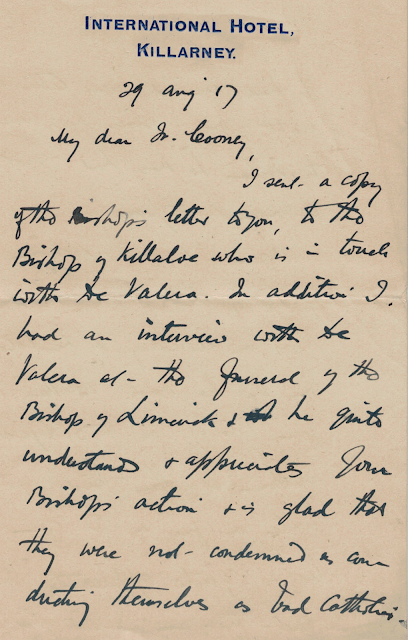 INTERNATIONAL HOTEL,
KILLARNEY.
29 Aug 17
My dear Fr. Cooney,
I sent a copy
of the Bishop's letter to you, to the
Bishop of Killaloe who is in touch
with De Valera. In addition I
had an interview with De
Valera at the funeral of the
Bishop of Limerick & he quite
understands & appreciates your
Bishop's action & is glad that
they were not condemned as con
ducting themselves as bad Catholics.